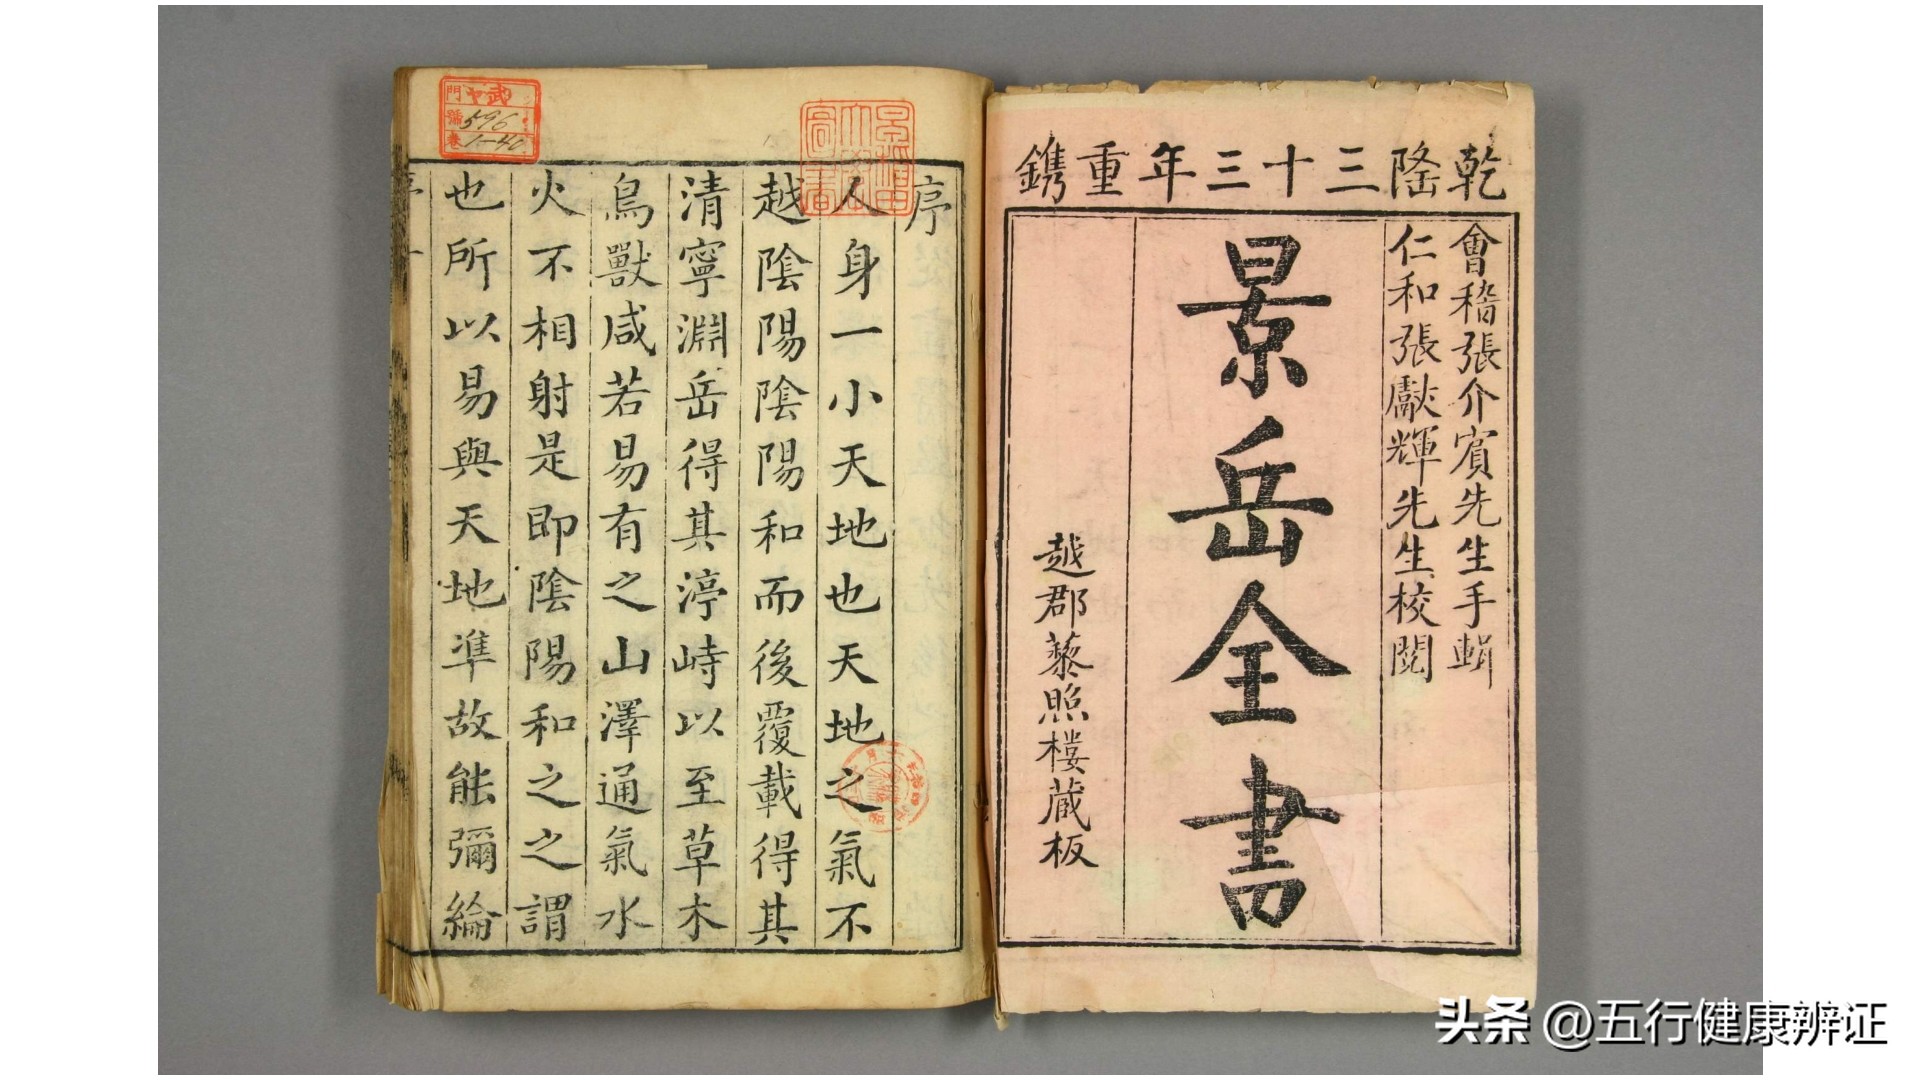 乾隆三十三年重鐫
會稽張介賓先生手輯
仁和張獻輝先生校閱
景岳全書
越郡藜照樓蔵板
序
人身一小天地也天地之氣不
越陰陽陰陽和而後覆載得其
清寧淵岳得其渟峙以至草木
鳥獸咸若易有之山澤通氣水
火不相射是即陰陽和之之謂
也所以易與天地準故能彌綸
門
號 596
卷 1-40
头条 @五行健康辨证